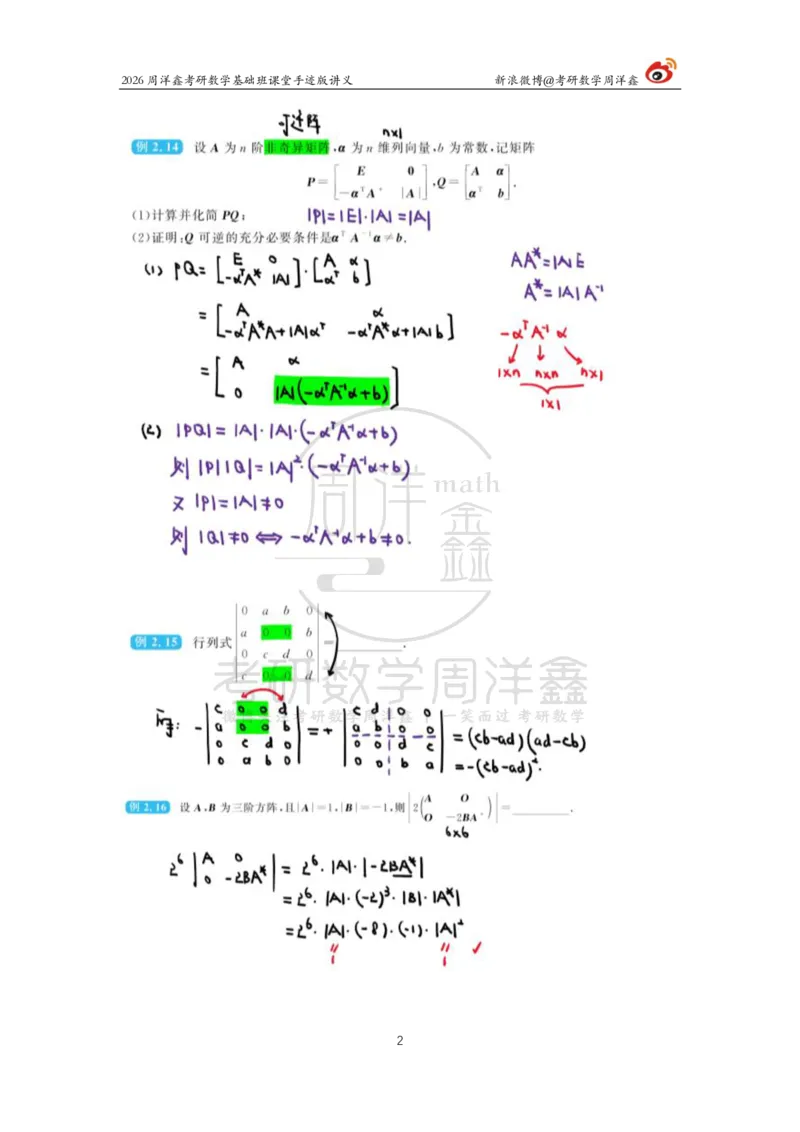 2026 周洋鑫考研数学基础班课堂手迹版讲义 新浪微博@考研数学周洋鑫
可逆阵
n×1
例 2.14 设 A 为 n 阶非奇异矩阵,α 为 n 维列向量,b 为常数,记矩阵
P=[E 0; -αᵀA* |A|],Q=[A α; αᵀ b].
(1)计算并化简 PQ; |P|=|E|·|A|=|A|
(2)证明:Q 可逆的充分必要条件是αᵀA⁻¹α≠b.
(1) PQ=[E 0; -αᵀA* |A|]·[A α; αᵀ b]
AA*=|A|E
A*=|A|A⁻¹
=[A α; -αᵀA*A+|A|αᵀ -αᵀA*α+|A|b]
-αᵀA⁻¹α
1×n n×n n×1
1×1
=[A α; 0 |A|(-αᵀA⁻¹α+b)]
(2) |PQ|=|A|·|A|·(-αᵀA⁻¹α+b)
则 |P||Q|=|A|²·(-αᵀA⁻¹α+b)
又 |P|=|A|≠0
则 |Q|≠0 ⟺ -αᵀA⁻¹α+b≠0.
周洋 math
鑫
例 2.15 行列式 |0 a b 0; a 0 0 b; 0 c d 0; c 0 0 d| = ______.
考研数学周洋鑫
考研数学周洋鑫 | 一笑而过 考研数学
原式: -|c 0 0 d; a 0 0 b; 0 c d 0; 0 a b 0| = +|c d 0 0; a b 0 0; 0 0 d c; 0 0 b a| = (cb-ad)(ad-cb)
=-(cb-ad)².
例 2.16 设 A,B 为三阶方阵,且|A|=1,|B|=-1,则|2(A O; O -2BA*)|=______.
6×6
2⁶|A 0; 0 -2BA*| = 2⁶·|A|·|-2BA*|
=2⁶·|A|·(-2)³·|B|·|A*|
=2⁶·|A|·(-8)·(-1)·|A|² ✓
1 1
2